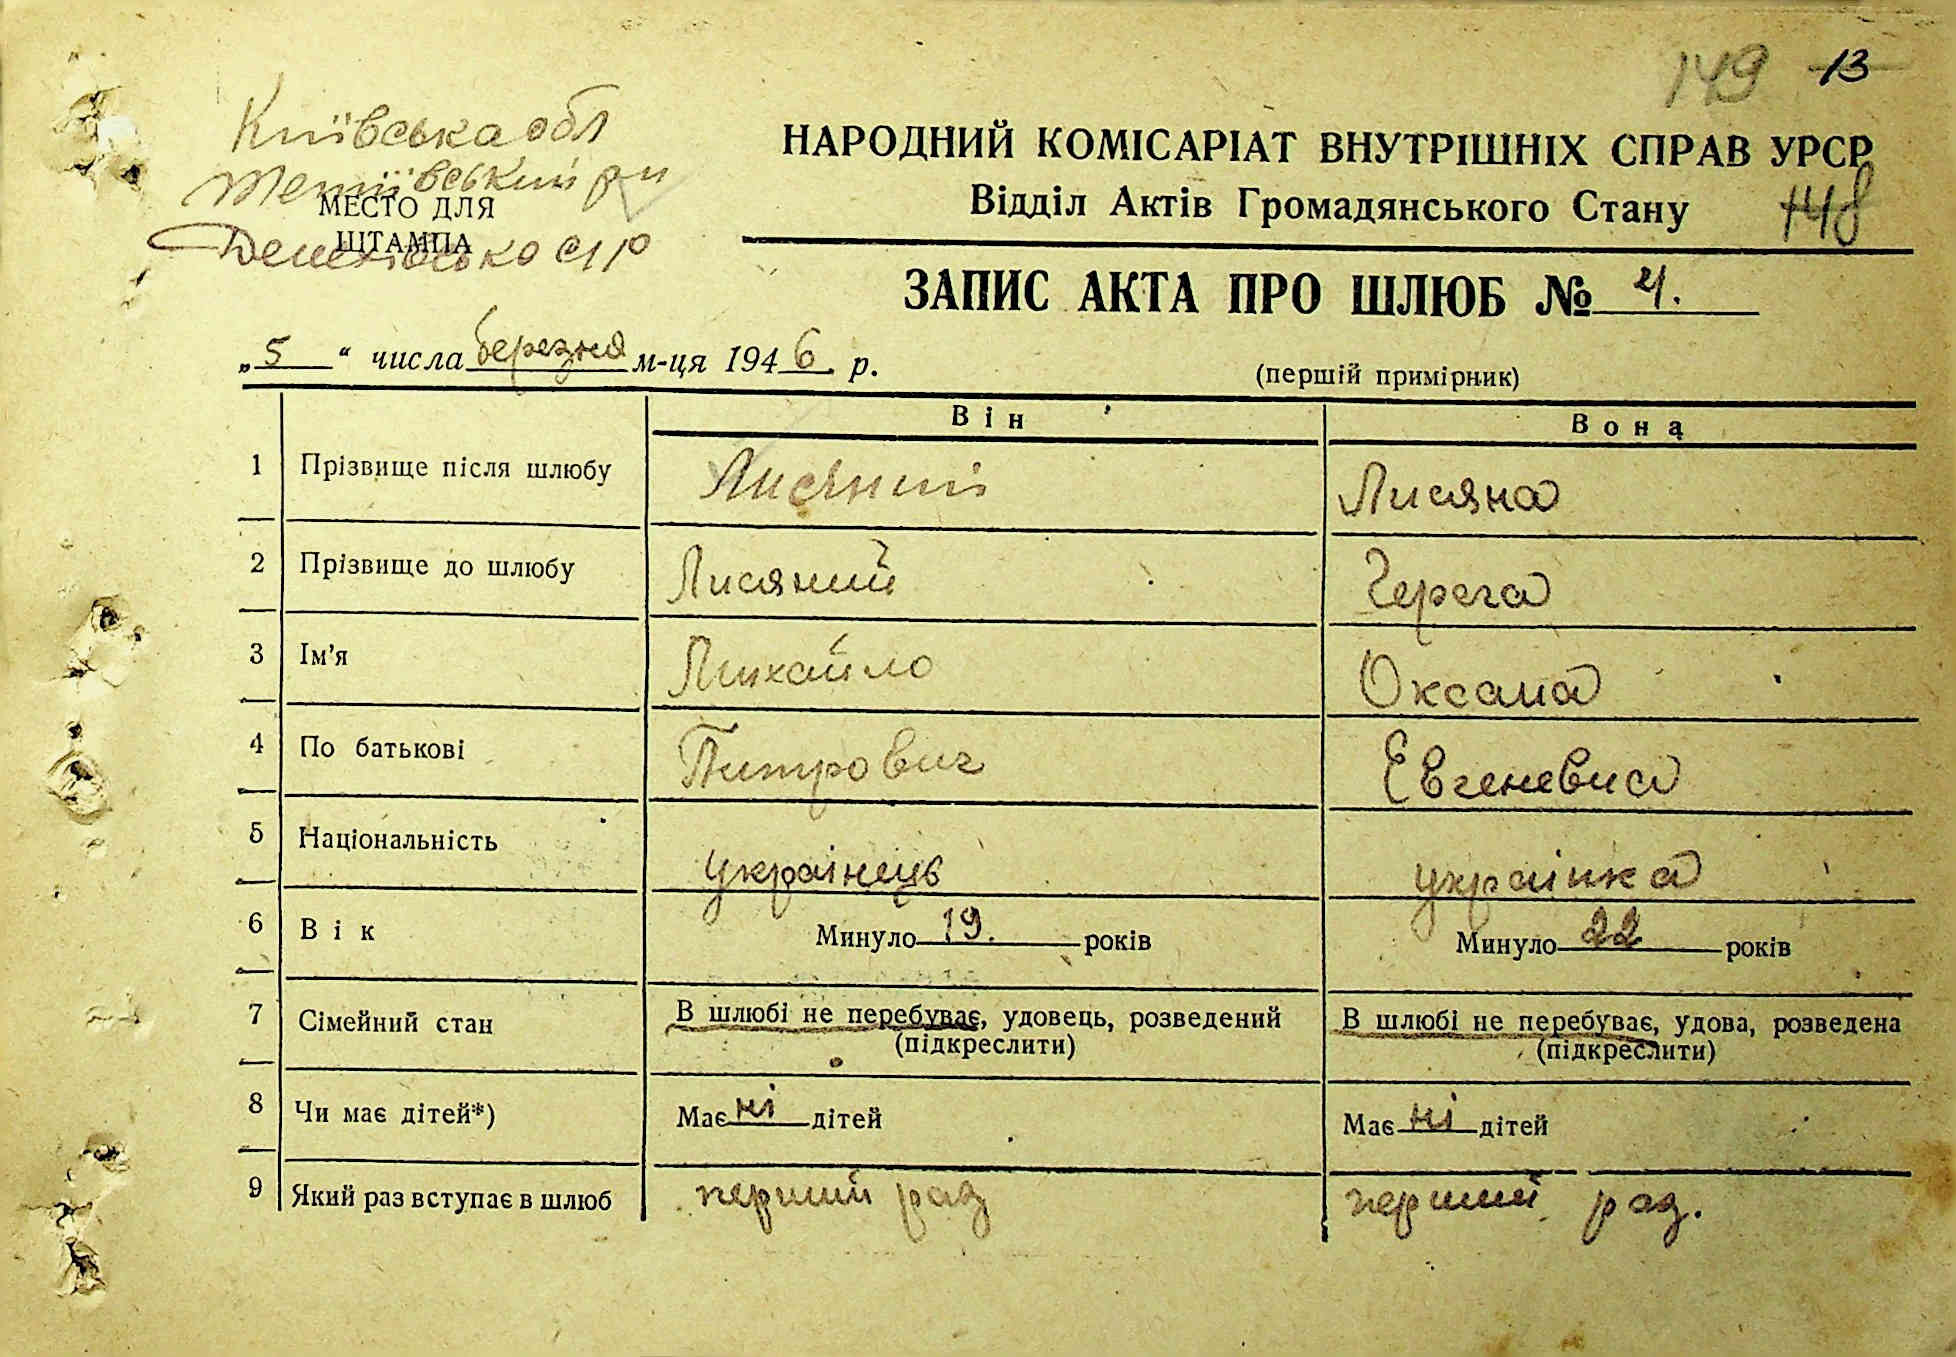 149 13
Київська обл
НАРОДНИЙ КОМІСАРІАТ ВНУТРІШНІХ СПРАВ УРСР
Тетіївський рн
МЕСТО ДЛЯ
Відділ Актів Громадянського Стану 148
ШТАМПА
ЗАПИС АКТА ПРО ШЛЮБ №
„5“ числа березня м-ця 1946 р.
(перший примірник)
Він Вона
1 Прізвище після шлюбу Лисяний Лисяна
2 Прізвище до шлюбу Лисяний Черега
3 Ім'я Михайло Оксана
4 По батькові Питрович Евгеневна
5 Національність українець українка
6 Вік Минуло 19. років Минуло 22 років
7 Сімейний стан В шлюбі не перебуває, удовець, розведений В шлюбі не перебуває, удова, розведена
(підкреслити) (підкреслити)
8 Чи має дітей*) Має ні дітей Має ні дітей
9 Який раз вступає в шлюб перший раз перший раз.